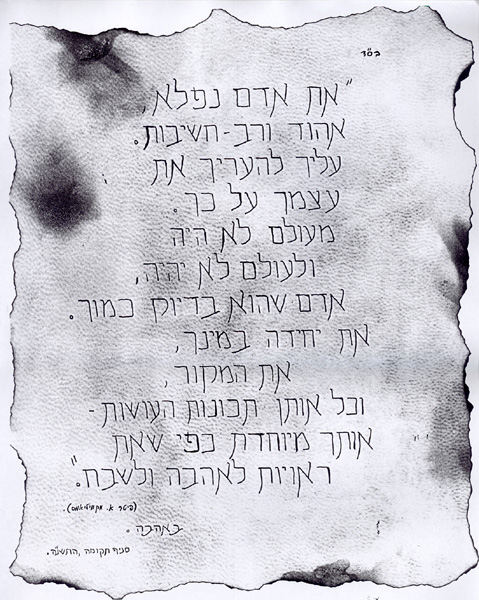 בס"ד
"את אדם נפלא,
אהוד ורב-חשיבות.
עליך להעריך את
עצמך על כך.
מעולם לא היה
ולעולם לא יהיה,
אדם שהוא בדיוק כמוך.
את יחידה במינך,
את המקור,
וכל אותן תכונות העושות-
אותך מיוחדת כפי שאת
ראויות לאהבה ולשבח."
(פיטר א. מקוויליאמס).
באהבה.
סניף תקומה, התשע"ה.